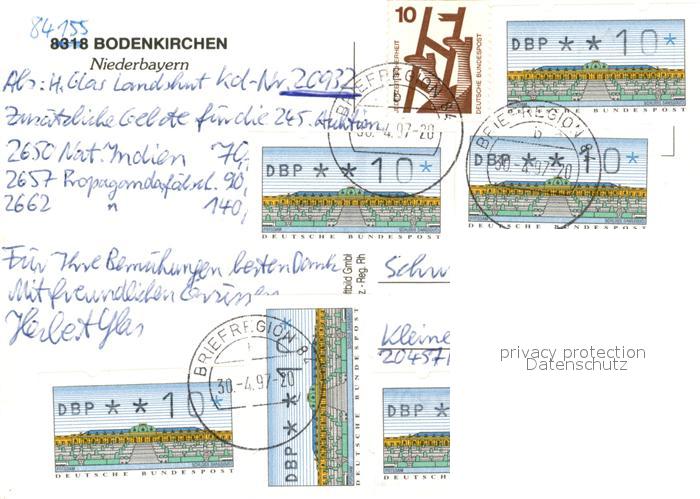 84155
8318 BODENKIRCHEN
Niederbayern
Abs: H. Glas Landshut Kd-Nr. 20932
Zusätzliche Gebote für die 245. Auktion
2650 Nat. Indien 70,
2657 Propagandafälsch. 90,
2662 " 140,
Für Ihre Bemühungen besten Dank
Mit freundlichen Grüssen
Herbert Glas
10
DEUTSCHE BUNDESPOST
DBP * * 10*
DEUTSCHE BUNDESPOST
BRIEFREGION 84
30.-4.97-20
DBP * * 10*
DEUTSCHE BUNDESPOST
BRIEFREGION 84
b
30.-4.97-20
DBP * * 10*
DEUTSCHE BUNDESPOST
ftbild GmbH
z - Reg. Rh
Schw
Kleine
204571
privacy protection
Datenschutz
BRIEFREGION 84
30.-4.97-20
DBP * * 10*
DEUTSCHE BUNDESPOST
DBP * * 10*
DEUTSCHE BUNDESPOST
DBP *
DEUTSCHE B